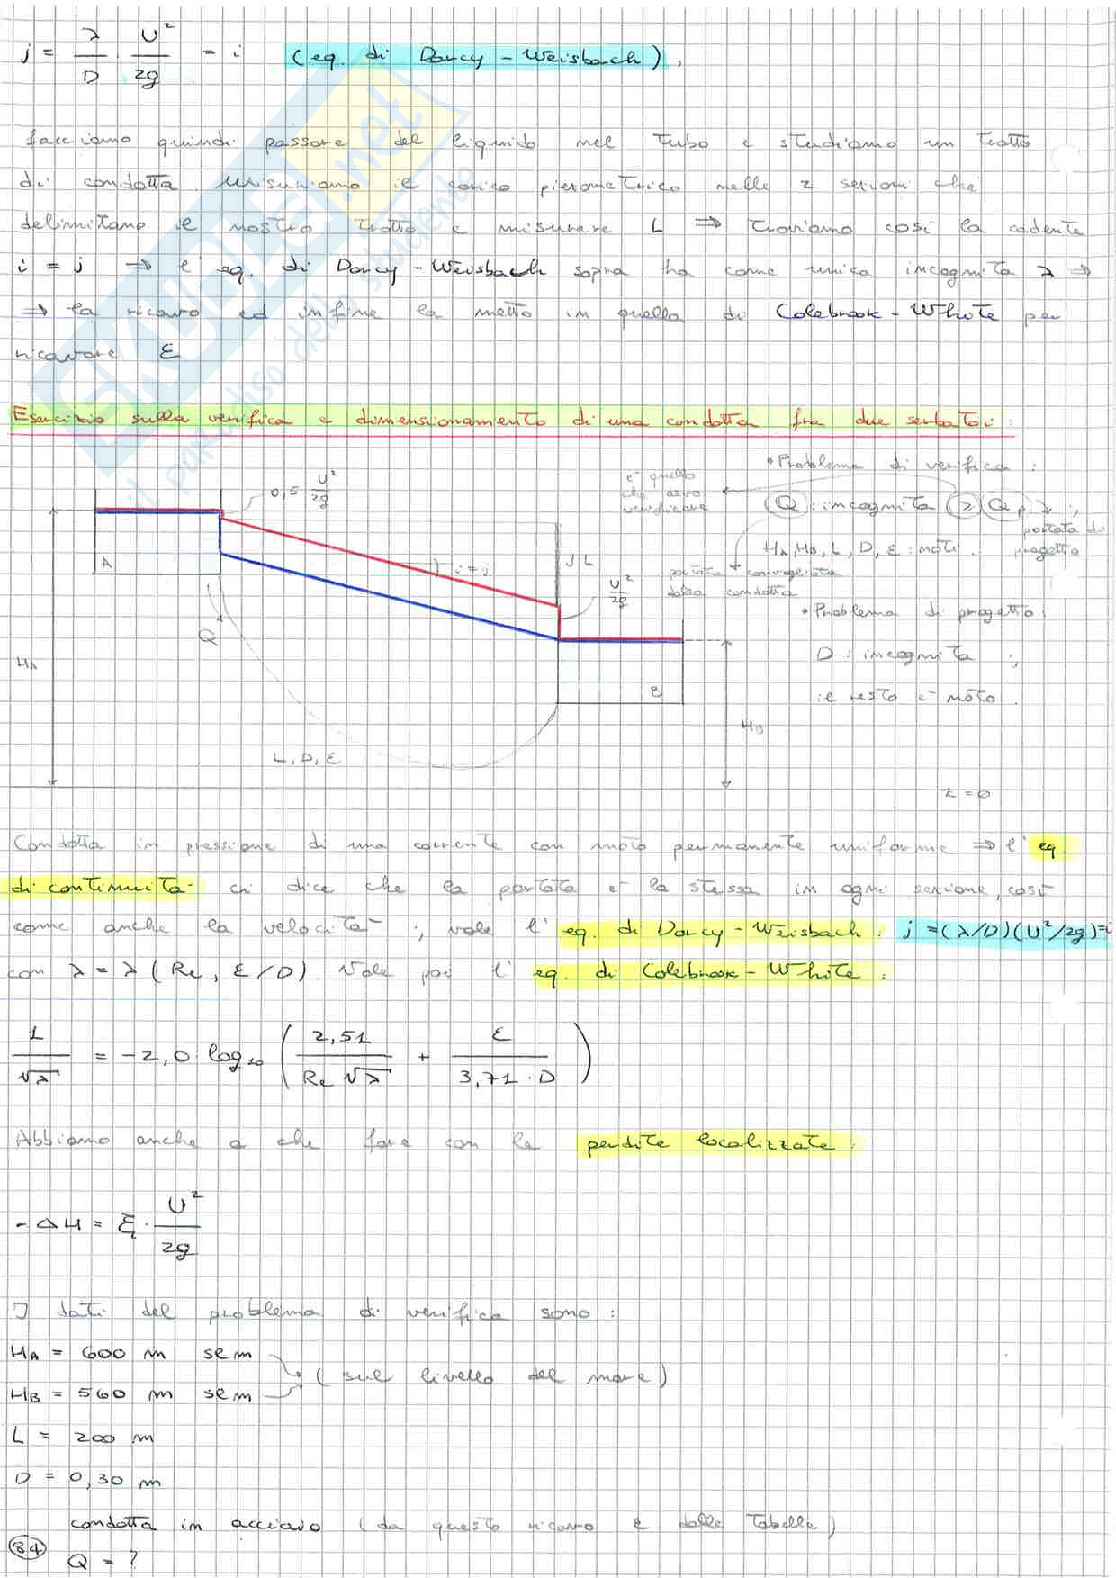 j = λ/D · U²/2g = i (eq. di Darcy-Weisbach).
facciamo quindi passare del liquido nel tubo e studiamo un tratto
di condotta. Misuriamo il carico piezometrico nelle 2 sezioni che
delimitano il nostro tratto e misurare L ⇒ troviamo così la cadente
i = j → l'eq. di Darcy-Weisbach sopra ha come unica incognita λ ⇒
⇒ la ricavo ed infine la metto in quella di Colebrook-White per
ricavare ε
Esercizio sulla verifica e dimensionamento di una condotta fra due serbatoi:
• Problema di verifica:
è quello che devo verificare
Q: incognita ≥ Qp
portata di progetto
HA, HB, L, D, ε: noti.
portata convogliata dalla condotta
• Problema di progetto:
D: incognita;
il resto è noto.
0,5 U²/2g
A
i = j
j L
U²/2g
Q
HA
B
HB
L, D, ε
z = 0
Condotta in pressione di una corrente con moto permanente uniforme ⇒ l'eq
di continuità ci dice che la portata è la stessa in ogni sezione, così
come anche la velocità; vale l'eq. di Darcy-Weisbach: j = (λ/D)(U²/2g) = i
con λ = λ(Re, ε/D). Vale poi l'eq. di Colebrook-White:
1/√λ = -2,0 log₁₀ (2,51/(Re √λ) + ε/(3,71 · D))
Abbiamo anche a che fare con le perdite localizzate:
-ΔH = ξ · U²/2g
I dati del problema di verifica sono:
HA = 600 m slm
(sul livello del mare)
HB = 560 m slm
L = 200 m
D = 0,30 m
condotta in acciaio (da questo ricavo ε dalle tabelle)
84
Q = ?